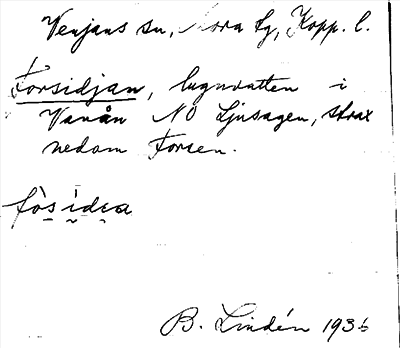 Venjans sn, Mora tg, Kopp. l.
Forsidjan, lugnvatten i
Vanån NO Ljusagen, strax
nedom Forsen.
fòs ìdea
B. Lindén 1936